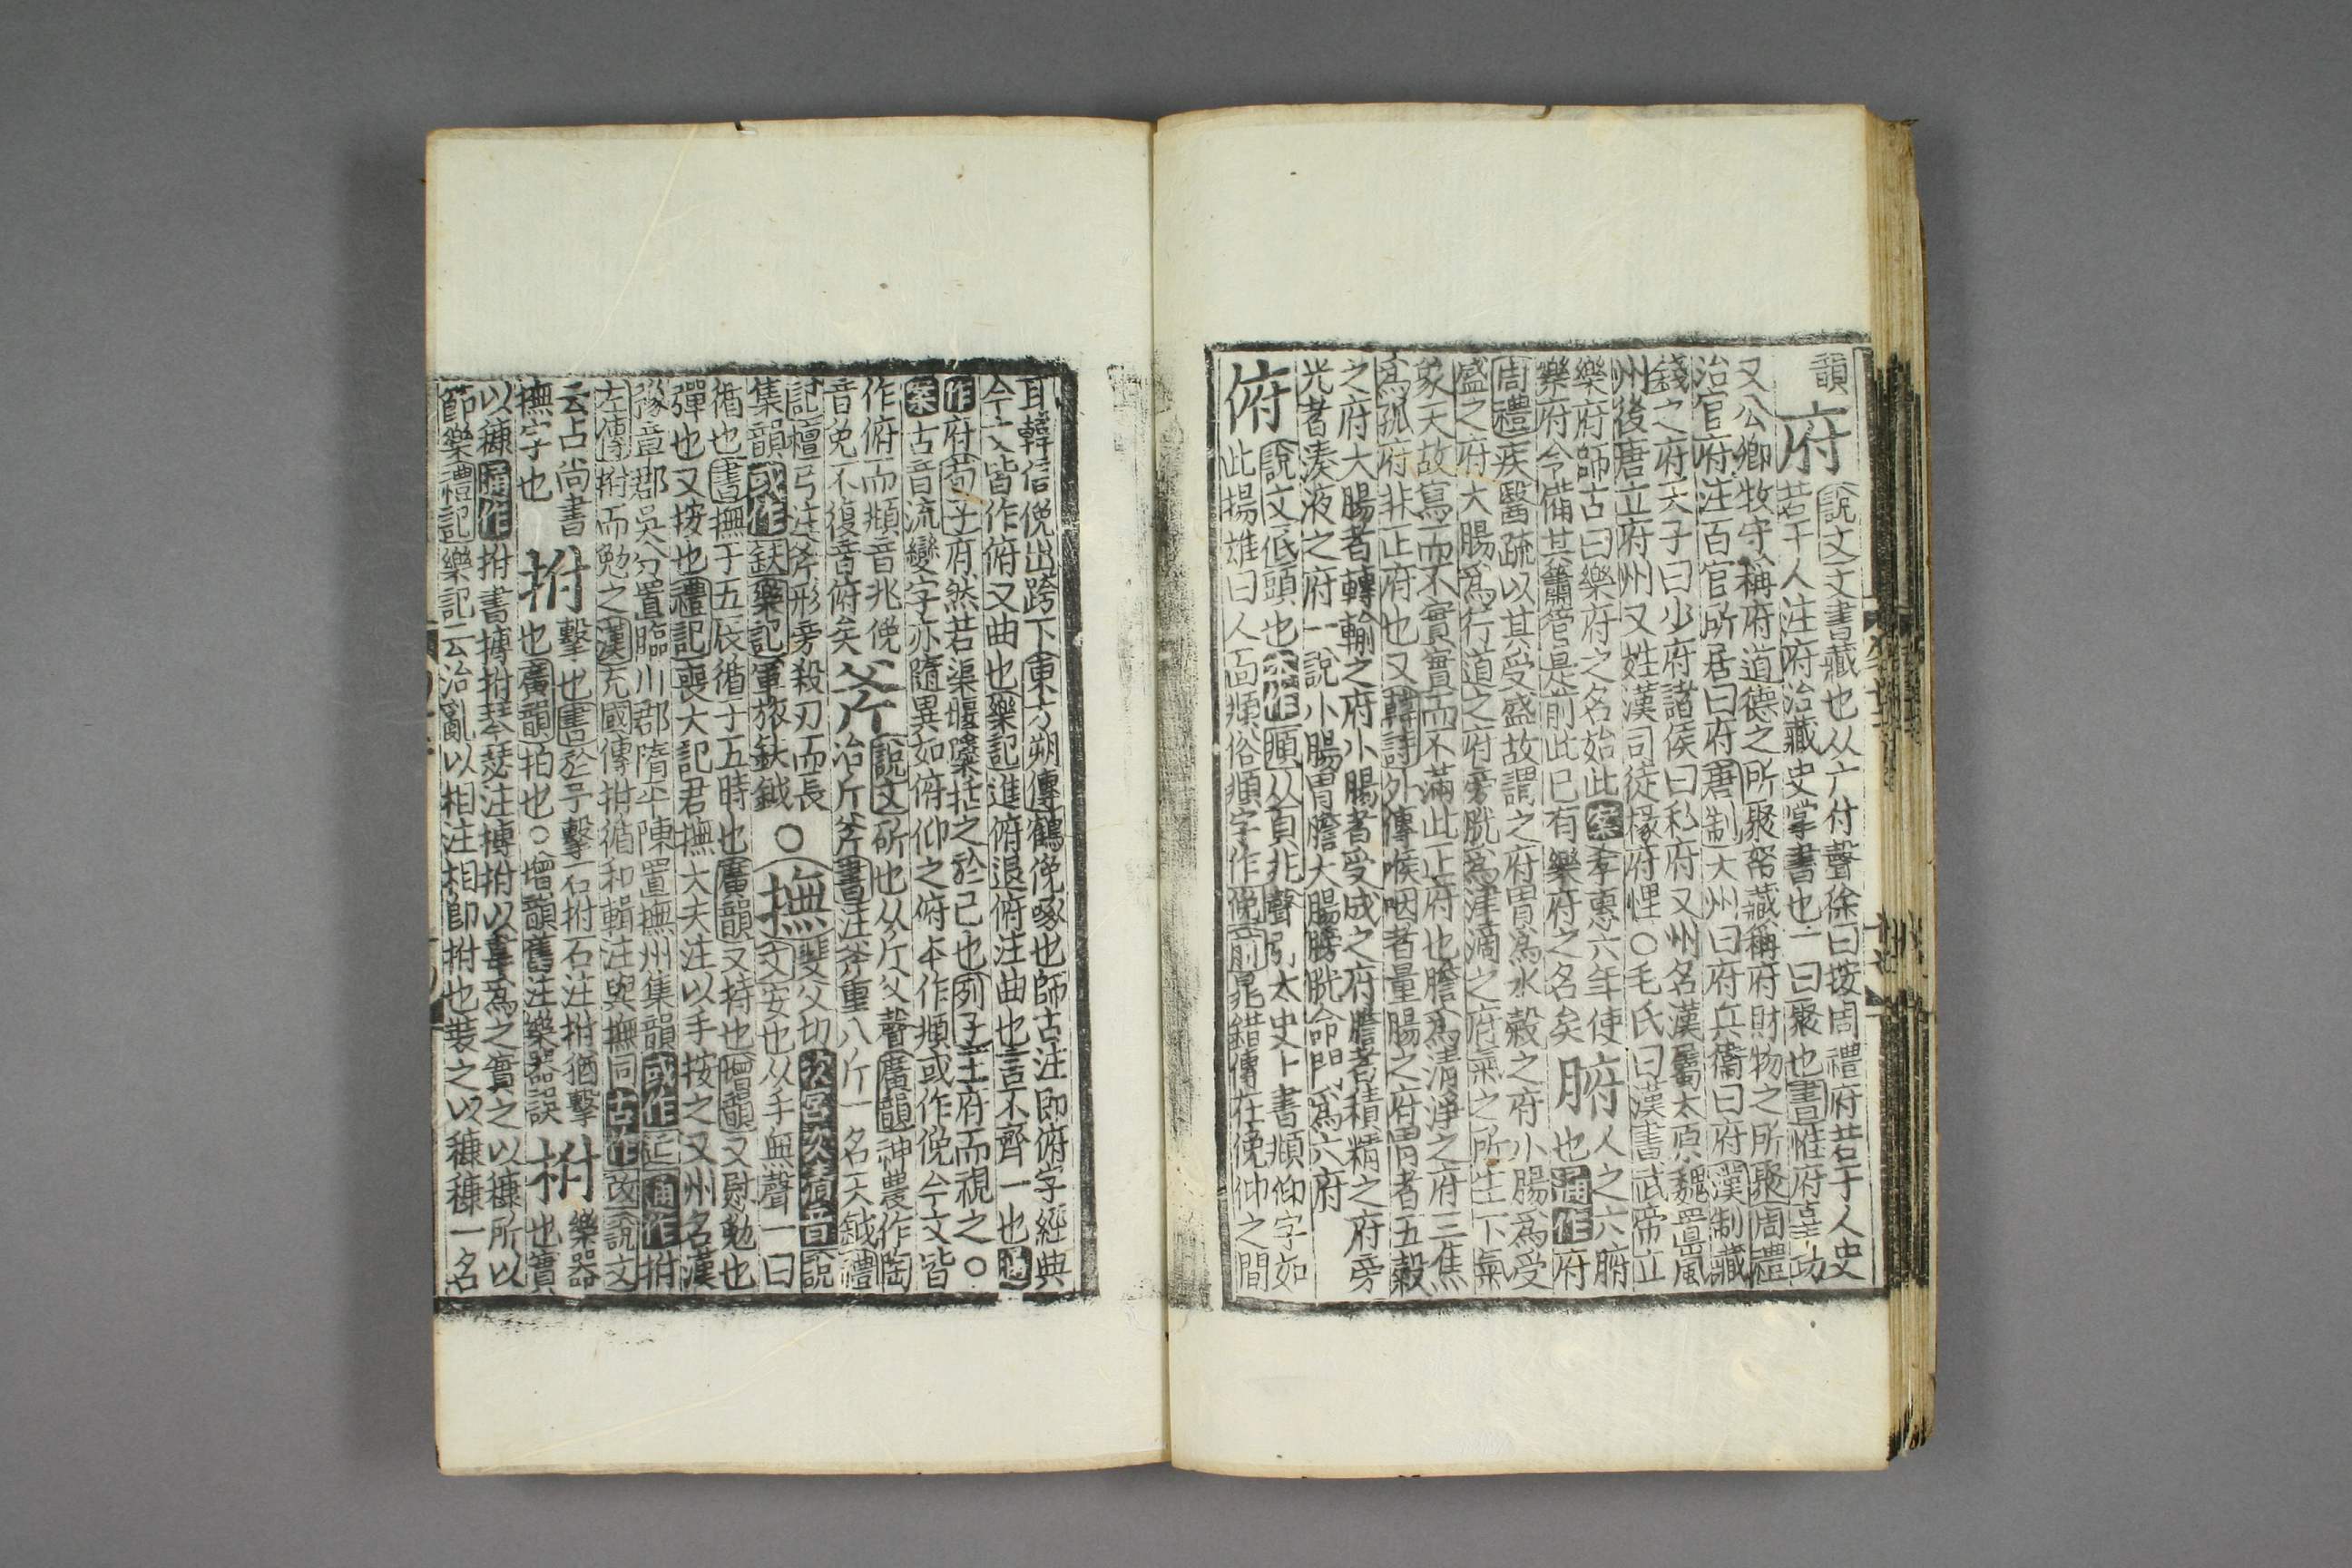 韻
府
說文文書藏也从广付聲徐曰按周禮府若干人史
若干人注府治藏史掌書也一曰聚也書惟府辜功
又公卿牧守稱府道德之所聚帑藏稱府財物之所聚周禮
治官府注百官所居曰府唐制大州曰府兵衛曰府漢制藏
錢之府天子曰少府諸侯曰私府又州名漢屬太原魏置風
州後唐立府州又姓漢司徒掾府悝○毛氏曰漢書武帝立
樂府師古曰樂府之名始此案孝惠六年使
樂府令備其簫管是前此已有樂府之名矣
腑
人之六腑
也通作府
周禮疾醫疏以其受盛故謂之府胃為水穀之府小腸為受
盛之府大腸為行道之府旁胱為津滴之府氣之所生下氣
象天故寫而不實實而不滿此正府也膽為清淨之府三焦
為孤府非正府也又韓詩外傳喉咽者量腸之府胃者五穀
之府大腸者轉輸之府小腸者受成之府膽者積精之府旁
光者湊液之府一說小腸胃膽大腸膀胱命門為六府
俯
說文低頭也本作頫从頁兆聲引太史卜書頫仰字如
此揚雄曰人面頫俗頫字作俛前鼂錯傳在俛仰之間
耳韓信俛出跨下東方朔傳鶴俛啄也師古注即俯字經典
今文皆作俯又曲也樂記進俯退俯注曲也言不齊一也通
作府荀子府然若渠堰檃括之於己也列子王府而視之○
案古音流變字亦隨異如俯仰之俯本作頫或作俛今文皆
作俯而頫音兆俛
音免不復音俯矣
斧
說文斫也从斤父聲廣韻神農作陶
冶斤斧書注斧重八斤一名天鉞禮
記檀弓注斧形旁殺刃而長
集韻或作鈇樂記軍旅鈇鉞
○
撫
斐父切次宮次清音說
文安也从手無聲一曰
循也書撫于五辰循于五時也廣韻又持也增韻又慰勉也
彈也又按也禮記喪大記君撫大夫注以手按之又州名漢
豫章郡吳分置臨川郡隋平陳置撫州集韻或作𢻲通作拊
左傳拊而勉之漢充國傳拊循和輯注與撫同古作改說文
云占尚書
撫字也
拊
擊也書於予擊石拊石注拊猶擊
也廣韻拍也○增韻舊注樂器誤
拊
樂器
也實
以穅通作拊書搏拊琴瑟注搏拊以韋為之實之以穅所以
節樂禮記樂記云治亂以相注相即拊也裝之以穅穅一名